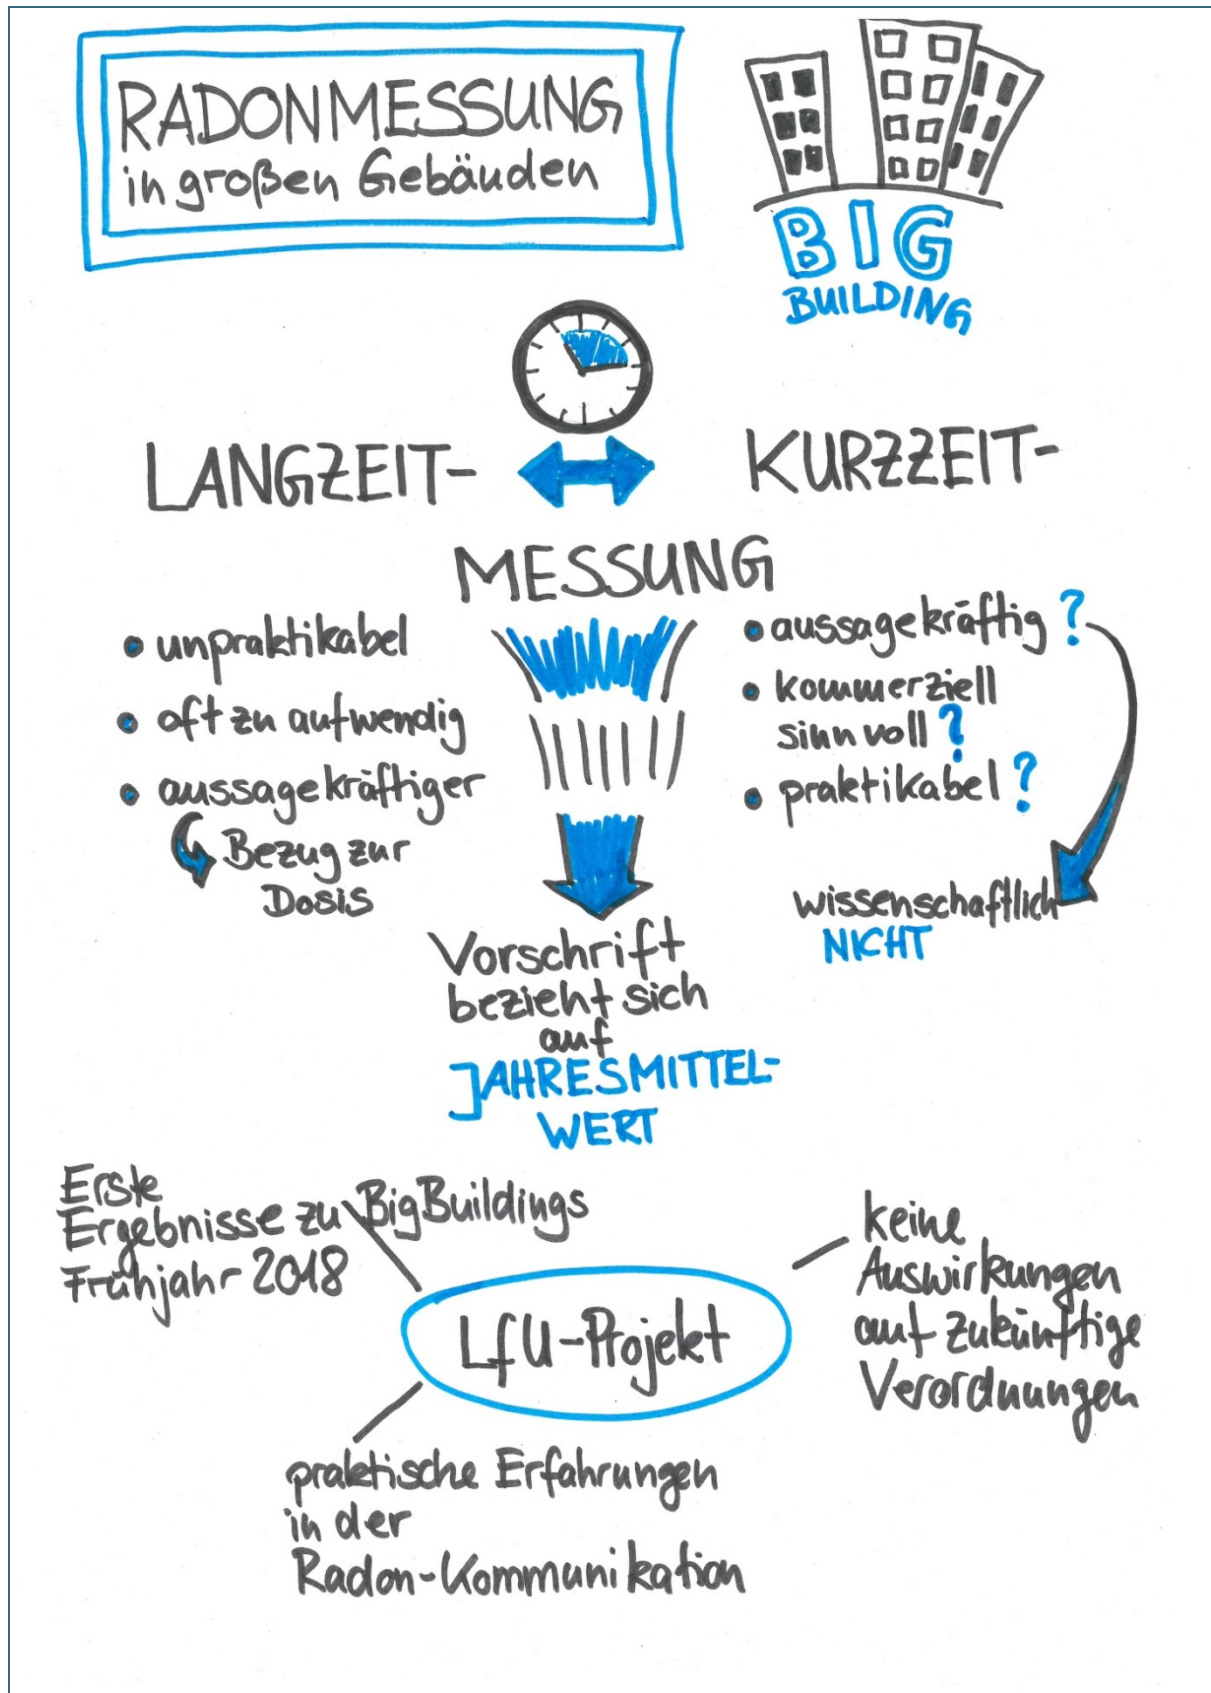 RADONMESSUNG
in großen Gebäuden
BIG
BUILDING
LANGZEIT-
KURZZEIT-
MESSUNG
• unpraktikabel
• oft zu aufwendig
• aussagekräftiger
Bezug zur
Dosis
• aussagekräftig ?
• kommerziell
sinnvoll ?
• praktikabel ?
wissenschaftlich
NICHT
Vorschrift
bezieht sich
auf
JAHRESMITTEL-
WERT
Erste
Ergebnisse zu BigBuildings
Frühjahr 2018
keine
Auswirkungen
auf zukünftige
Verordnungen
LfU-Projekt
praktische Erfahrungen
in der
Radon-Kommunikation